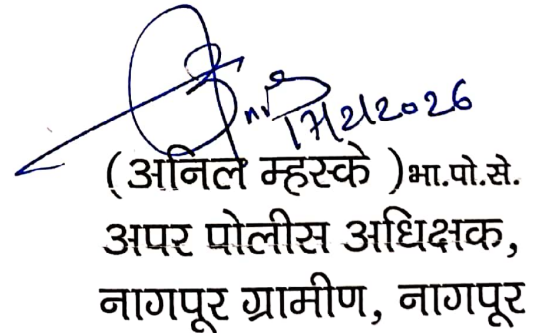 17/2/2026
(अनिल म्हस्के )भा.पो.से.
अपर पोलीस अधिक्षक,
नागपूर ग्रामीण, नागपूर